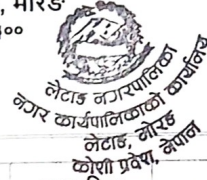 , मोरङ
लेटाङ नगरपालिका
नगर कार्यपालिकाको कार्यालय
लेटाङ, मोरङ
कोशी प्रदेश, नेपाल